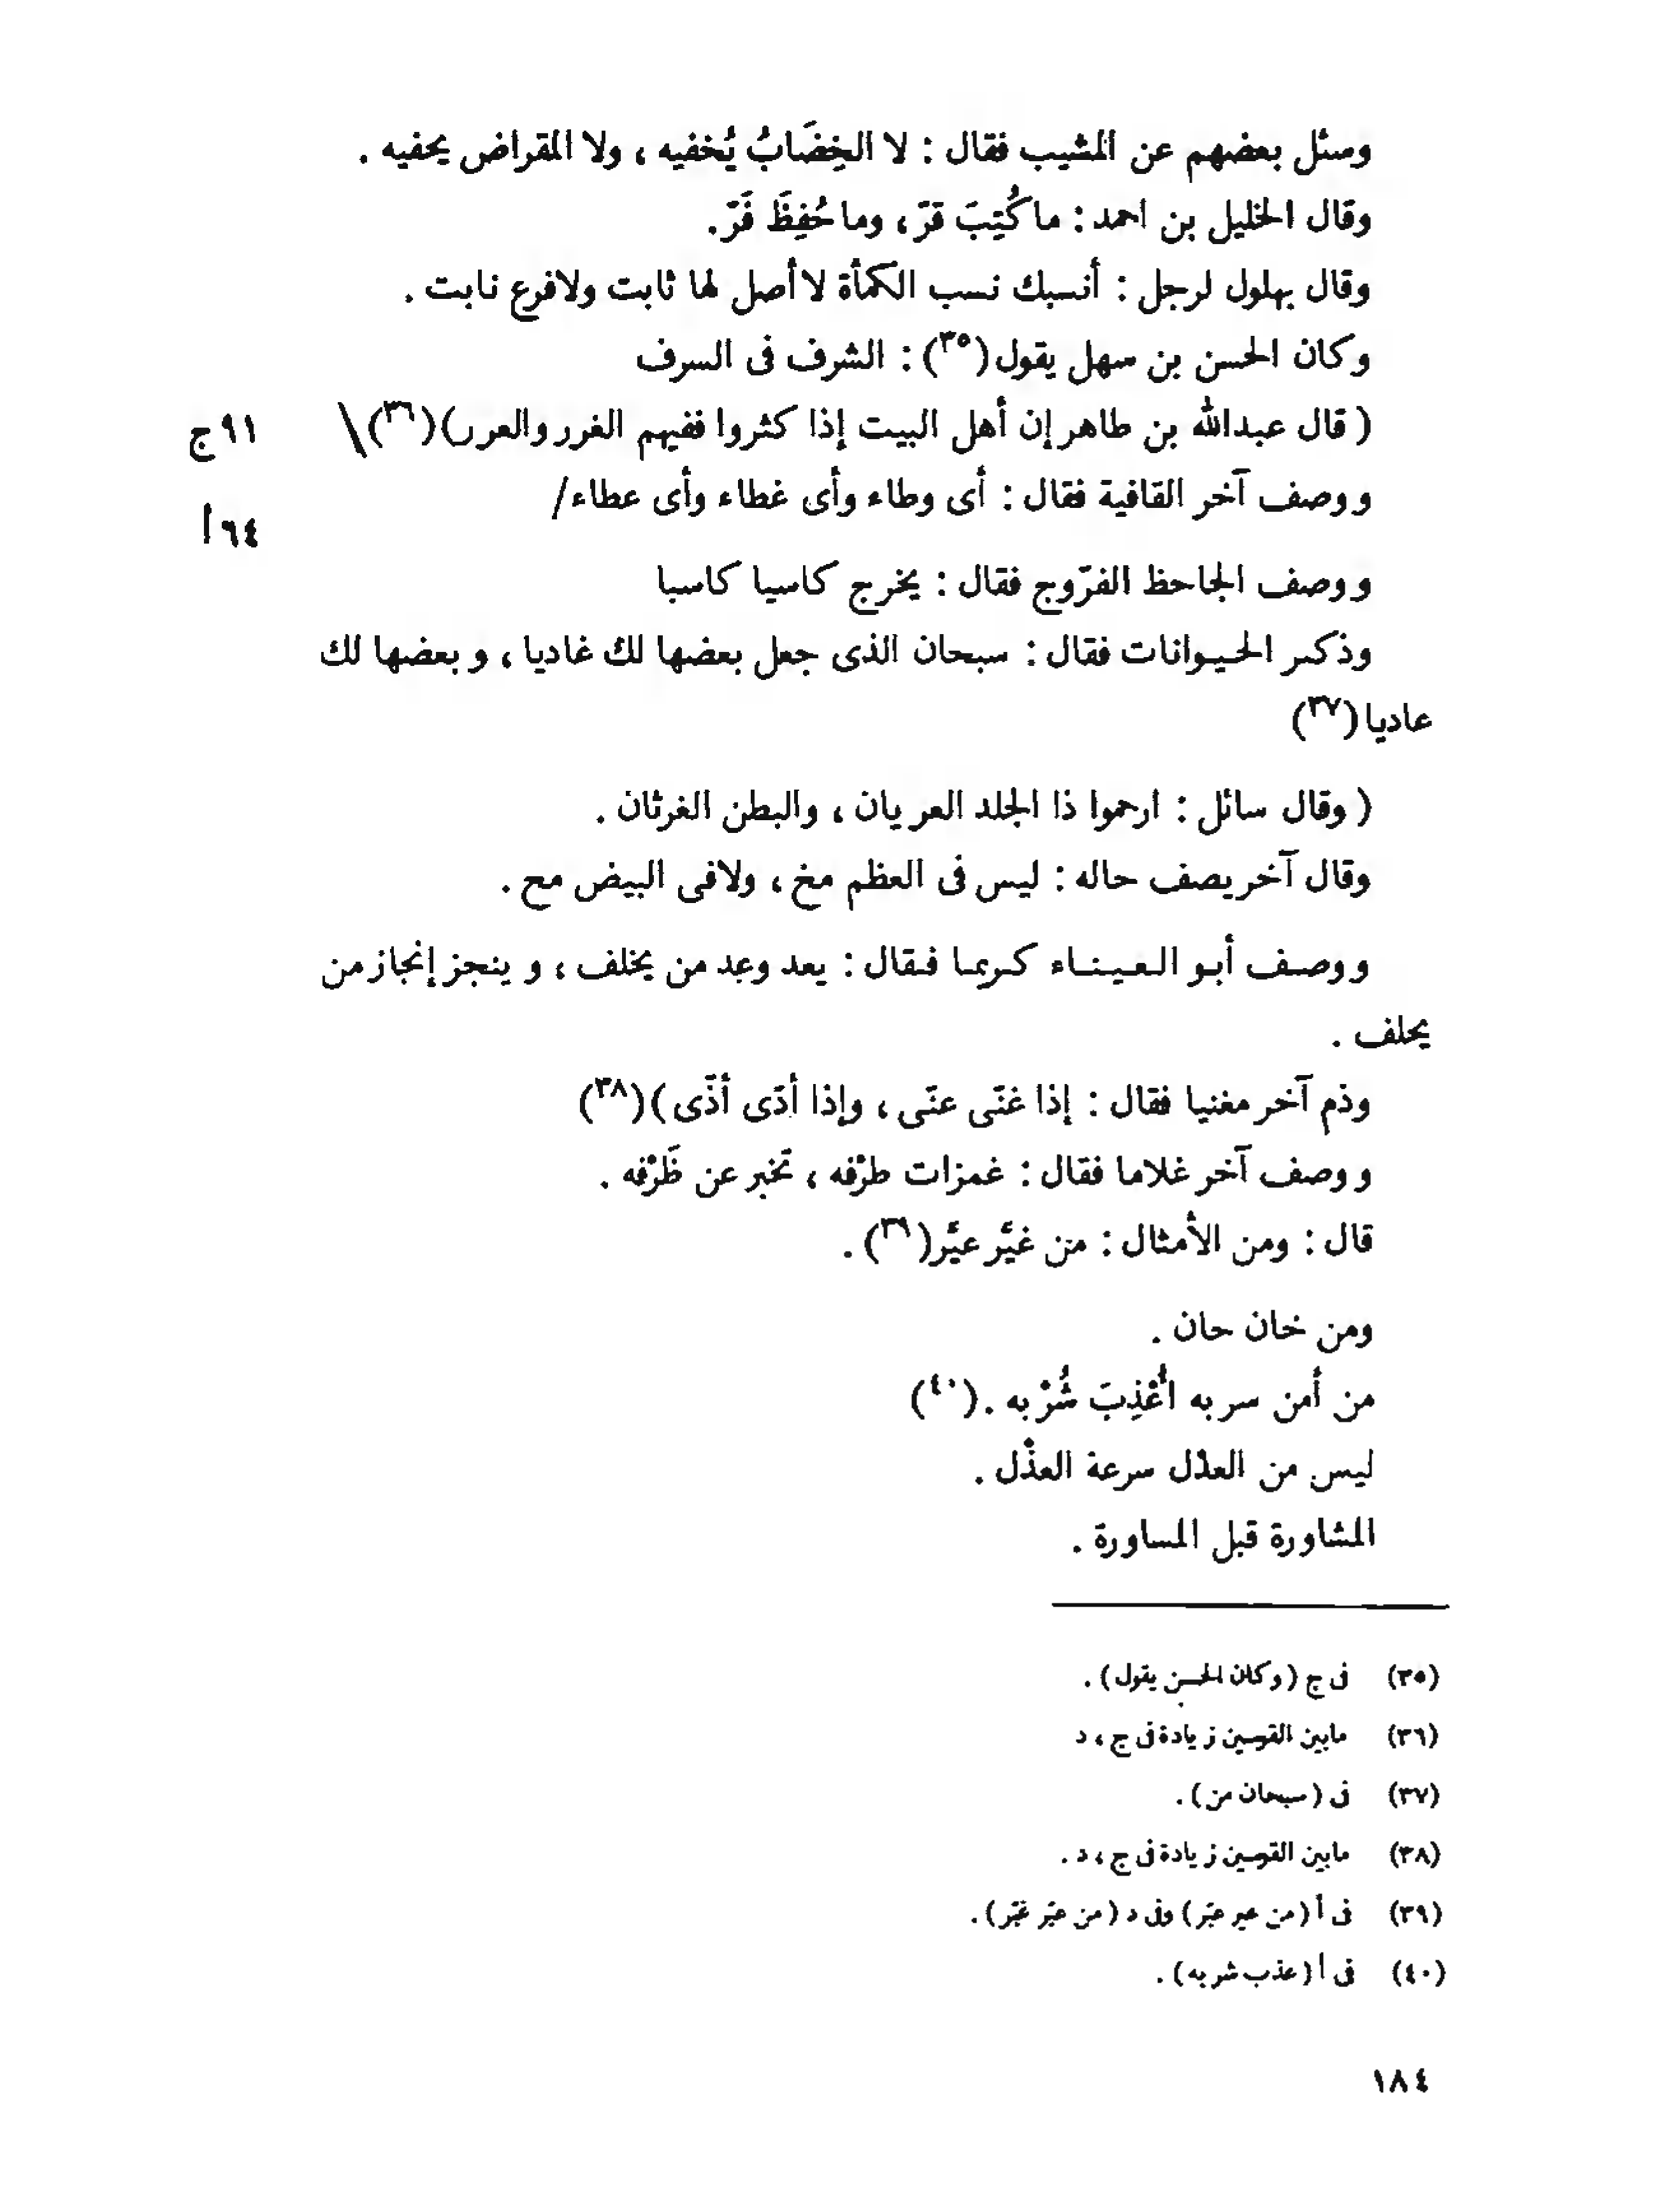 وسئل بعضهم عن المشيب فقال : لا الخِضَابُ يُخفيه ، ولا المقراض يحفيه .
وقال الخليل بن احمد : ما كُتِبَ قرّ ، وما حُفِظَ فَرّ .
وقال بهلول لرجل : أنسبك نسب الكمأة لا أصل لها ثابت ولافرع نابت .
وكان الحسن بن سهل يقول (٣٥) : الشرف فى السرف
( قال عبدالله بن طاهر إن أهل البيت إذا كثروا ففيهم الغرر والعرر) (٣٦) \ ٩١ ج
ووصف آخر القافية فقال : أى وطاء وأى غطاء وأى عطاء /
٦٤ أ
ووصف الجاحظ الفرّوج فقال : يخرج كاسيا كاسبا
وذكر الحيوانات فقال : سبحان الذى جعل بعضها لك غاديا ، وبعضها لك
عاديا (٣٧)
( وقال سائل : ارحموا ذا الجلد العريان ، والبطن الغرثان .
وقال آخر يصف حاله : ليس فى العظم مخ ، ولافى البيض مح .
ووصف أبو العيناء كريما فقال : يعد وعد من يخلف ، وينجز إنجاز من
يحلف .
وذم آخر مغنيا فقال : إذا غنّى عنّى ، وإذا أدّى أذّى ) (٣٨)
ووصف آخر غلاما فقال : غمزات طرْفه ، تخبر عن ظَرْفه .
قال : ومن الأمثال : من غيَّر عيَّر (٣٩) .
ومن خان حان .
من أمن سربه اُعْذِبَ شُرْبه . (٤٠)
ليس من العدْل سرعة العذْل .
المشاورة قبل المساورة .
(٣٥) فى ج (وكان الحسن يقول) .
(٣٦) مابين القوسين زيادة فى ج ، د
(٣٧) فى (سبحان من) .
(٣٨) مابين القوسين زيادة فى ج ، د .
(٣٩) فى أ (من عير عيّر) وفى د (من عيّر غيّر) .
(٤٠) فى أ (عذب شربه) .
١٨٤